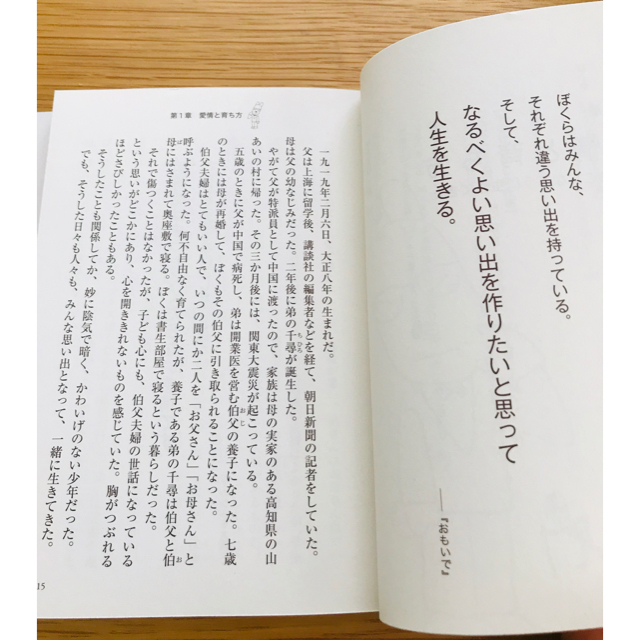 ぼくらはみんな、
それぞれ違う思い出を持っている。
そして、
なるべくよい思い出を作りたいと思って
人生を生きる。
――『おもいで』
第1章 愛情と育ち方
一九一九年二月六日、大正八年の生まれだ。
父は上海に留学後、講談社の編集者などを経て、朝日新聞の記者をしていた。
母は父の幼なじみだった。二年後に弟の千尋が誕生した。
やがて父が特派員として中国に渡ったので、家族は母の実家のある高知県の山
あいの村に帰った。その三か月後には、関東大震災が起こっている。
五歳のときに父が中国で病死し、弟は開業医を営む伯父の養子になった。七歳
のときには母が再婚して、ぼくもその伯父に引き取られることになった。
伯父夫婦はとてもいい人で、いつの間にか二人を「お父さん」「お母さん」と
呼ぶようになった。何不自由なく育てられたが、養子である弟の千尋は伯父と伯
母にはさまれて奥座敷で寝る。ぼくは書生部屋で寝るという暮らしだった。
それで傷つくことはなかったが、子ども心にも、伯父夫婦の世話になっている
という思いがどこかにあり、心を開ききれないものを感じていた。胸がつぶれる
ほどさびしかったこともある。
そうしたことも関係してか、妙に陰気で暗く、かわいげのない少年だった。
でも、そうした日々も人々も、みんな思い出となって、一緒に生きてきた。
15